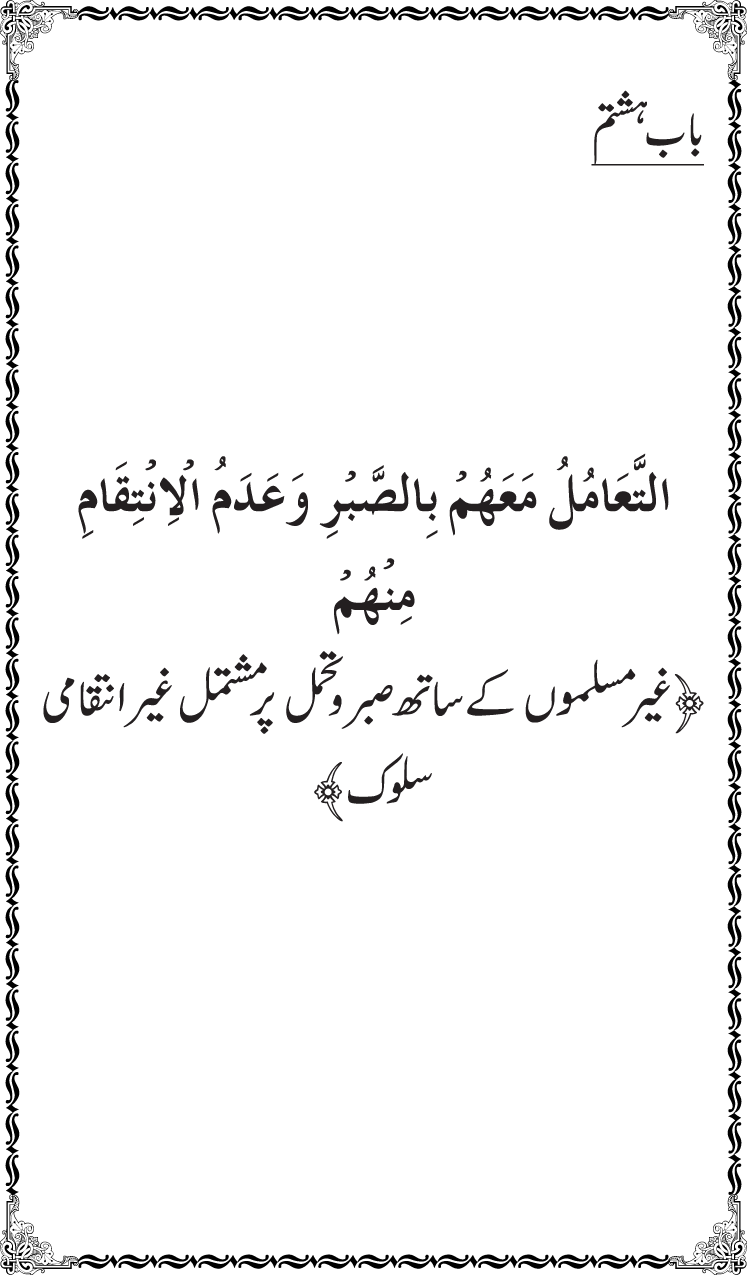 باب ہشتم
التَّعَامُلُ مَعَهُمْ بِالصَّبْرِ وَعَدَمُ الْاِنْتِقَامِ
مِنْهُمْ
﴿غیر مسلموں کے ساتھ صبر و تحمل پر مشتمل غیر انتقامی
سلوک﴾